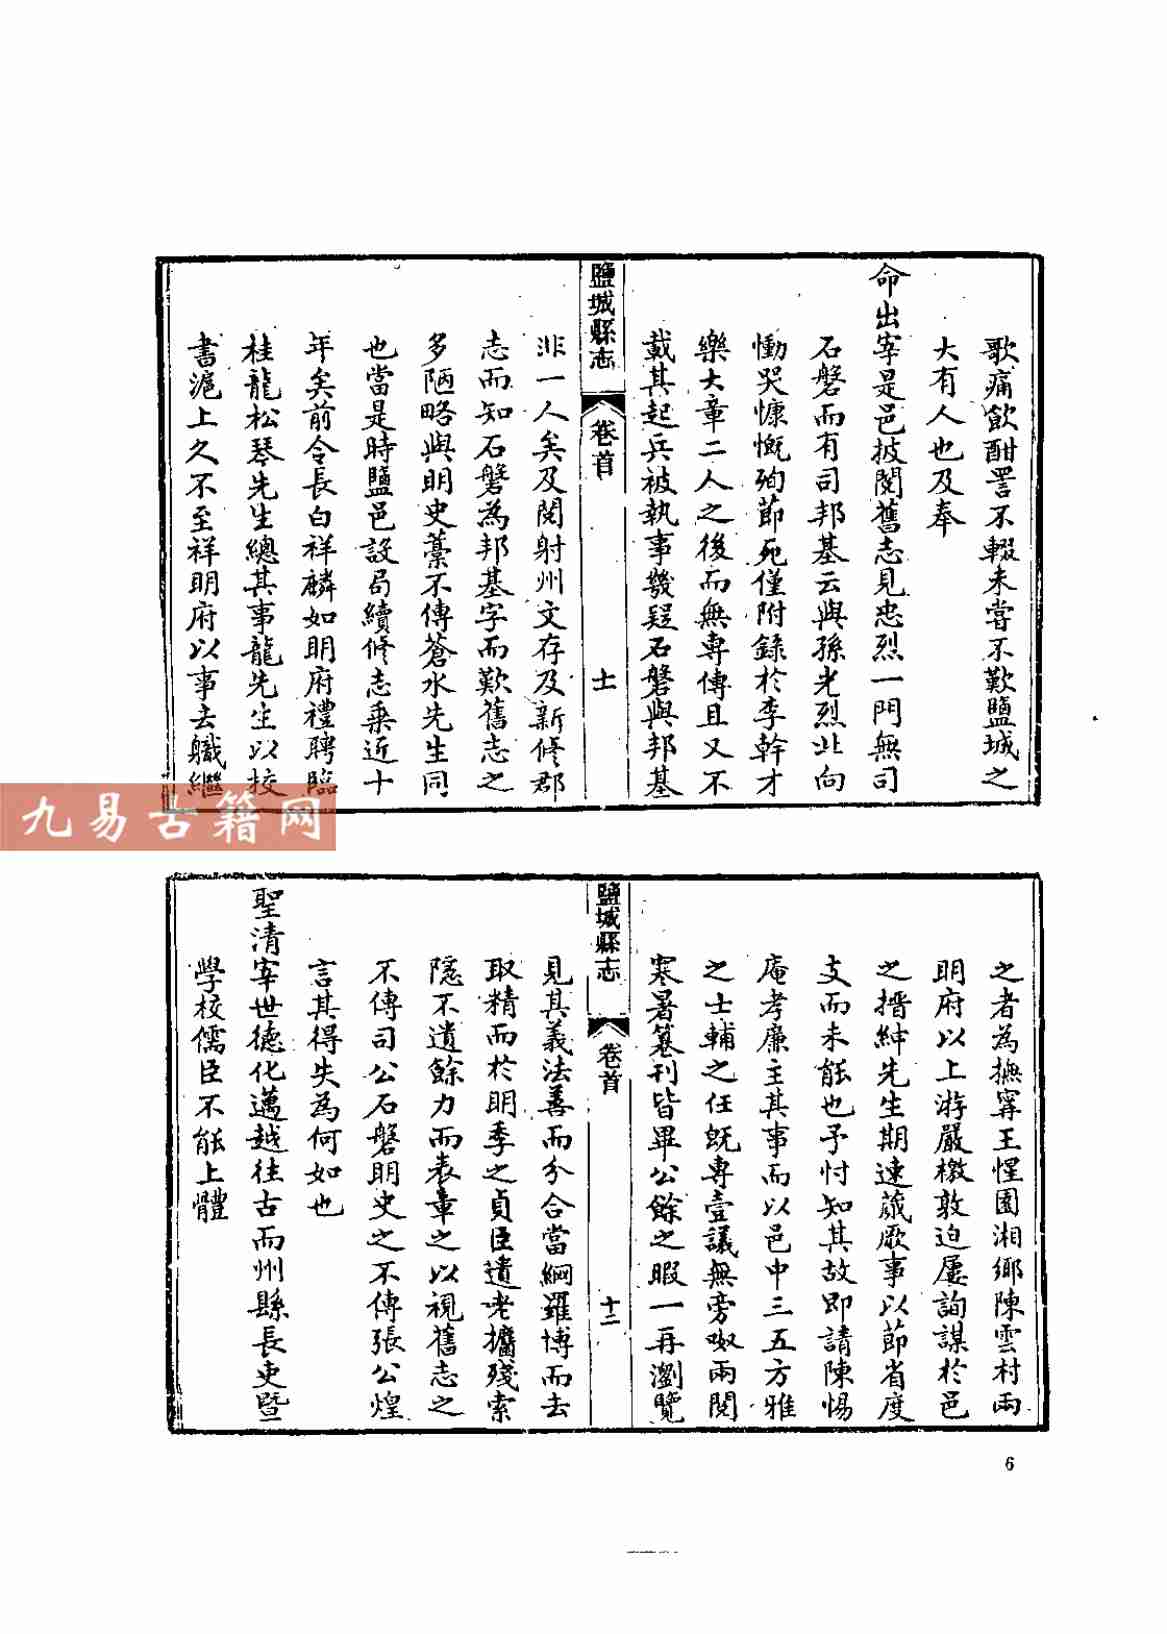 歌痛飲酣詈不輟未嘗不歎鹽城之
大有人也及奉
命出宰是邑披閱舊志見忠烈一門無司
石磐而有司邦基云與孫光烈北向
慟哭慷慨殉節死僅附錄於李幹才
樂大章二人之後而無專傳且又不
載其起兵被執事幾疑石磐與邦基
鹽城縣志
卷首
十一
非一人矣及閱射州文存及新修郡
志而知石磐為邦基字而歎舊志之
多陋略與明史藁不傳蒼水先生同
也當是時鹽邑設局續修志乘近十
年矣前令長白祥麟如明府禮聘臨
桂龍松琴先生總其事龍先生以校
書滬上久不至祥明府以事去職繼
之者為撫寗王惺園湘鄉陳雲村兩
明府以上游嚴檄敦迫屢詢謀於邑
之搢紳先生期速蕆厥事以節省度
支而未能也予忖知其故即請陳惕
庵孝廉主其事而以邑中三五方雅
之士輔之任既專壹議無旁呶兩閱
寒暑纂刊皆畢公餘之暇一再瀏覽
鹽城縣志
卷首
十二
見其義法善而分合當網羅博而去
取精而於明季之貞臣遺老擴殘索
隱不遺餘力而表章之以視舊志之
不傳司公石磐明史之不傳張公煌
言其得失為何如也
聖清宰世德化邁越往古而州縣長吏暨
學校儒臣不能上體
6
九易古籍网